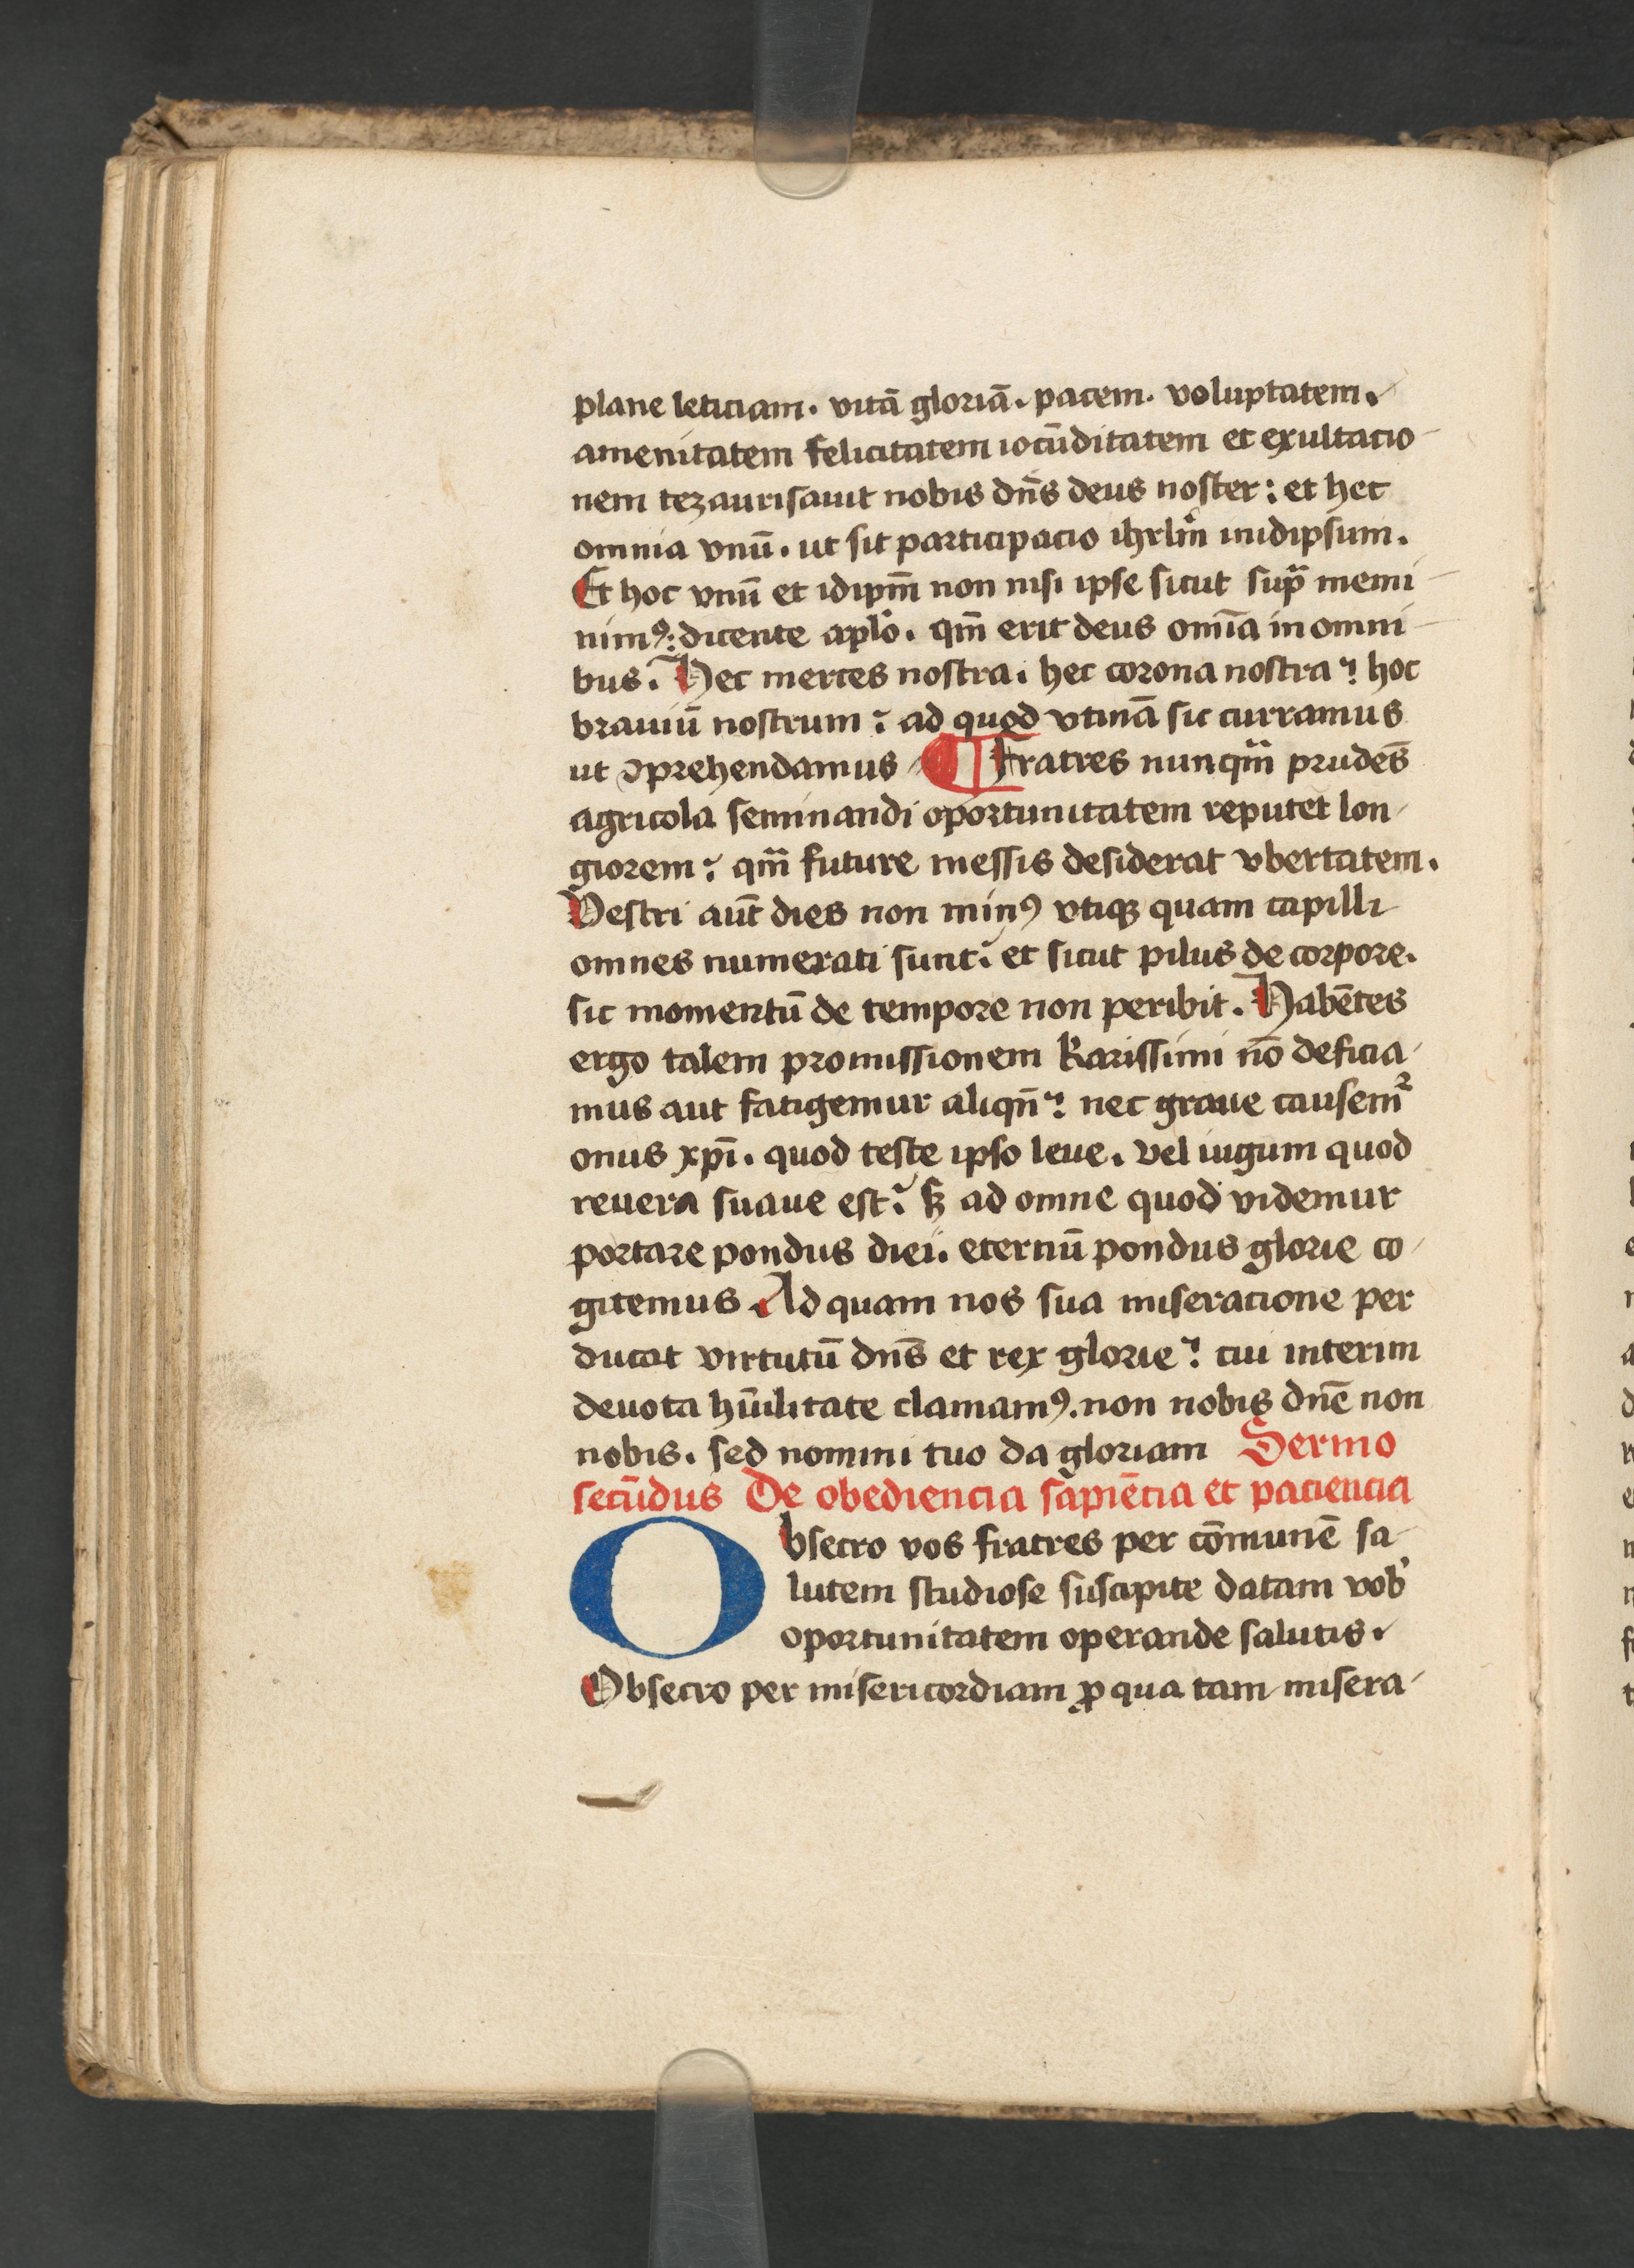 plane leticiam. vitā gloriā. pacem. voluptatem.
amenitatem felicitatem iocūditatem et exultacio-
nem tezaurisauit nobis dn̄s deus noster: et hec
omnia vnū. ut sit participacio ihrlm̄ inidipsum.
Et hoc vnū et idipm̄ non nisi ipse sicut supͣ memi-
nimꝰ: dicente aplo̅. qm̄ erit deus om̄ia in omni-
bus. Hec merces nostra. hec corona nostra: hoc
brauiū nostrum: ad quod vtinā sic curramus
ut ↄprehendamus ¶ Fratres nunqm̄ prudēs
agricola seminandi oportunitatem reputet lon-
giorem: qm̄ future messis desiderat vbertatem.
Vestri aūt dies non minꝰ vtiqꝫ quam capilli
omnes numerati sunt: et sicut pilus de corpore.
sic momentū de tempore non peribit. Habētes
ergo talem promissionem Karissimi nō deficia-
mus aut fatigemur aliqn̄: nec graue causem᷑
onus xpī. quod teste ipso leue. vel iugum quod
reuera suaue est: sꝫ ad omne quod videmur
portare pondus diei. eternū pondus glorie co-
gitemus. Ad quam nos sua miseracione per
ducat virtutū dn̄s et rex glorie: cui interim
deuota hūilitate clamamꝰ. non nobis dn̄e non
nobis. sed nomini tuo da gloriam Sermo
secūdus De obediencia sapiēcia et paciencia
Obsecro vos fratres per cōmunē sa-
lutem studiose suscipite datam vob᾽
oportunitatem operande salutis.
Obsecro per misericordiam ꝓ qua tam misera-